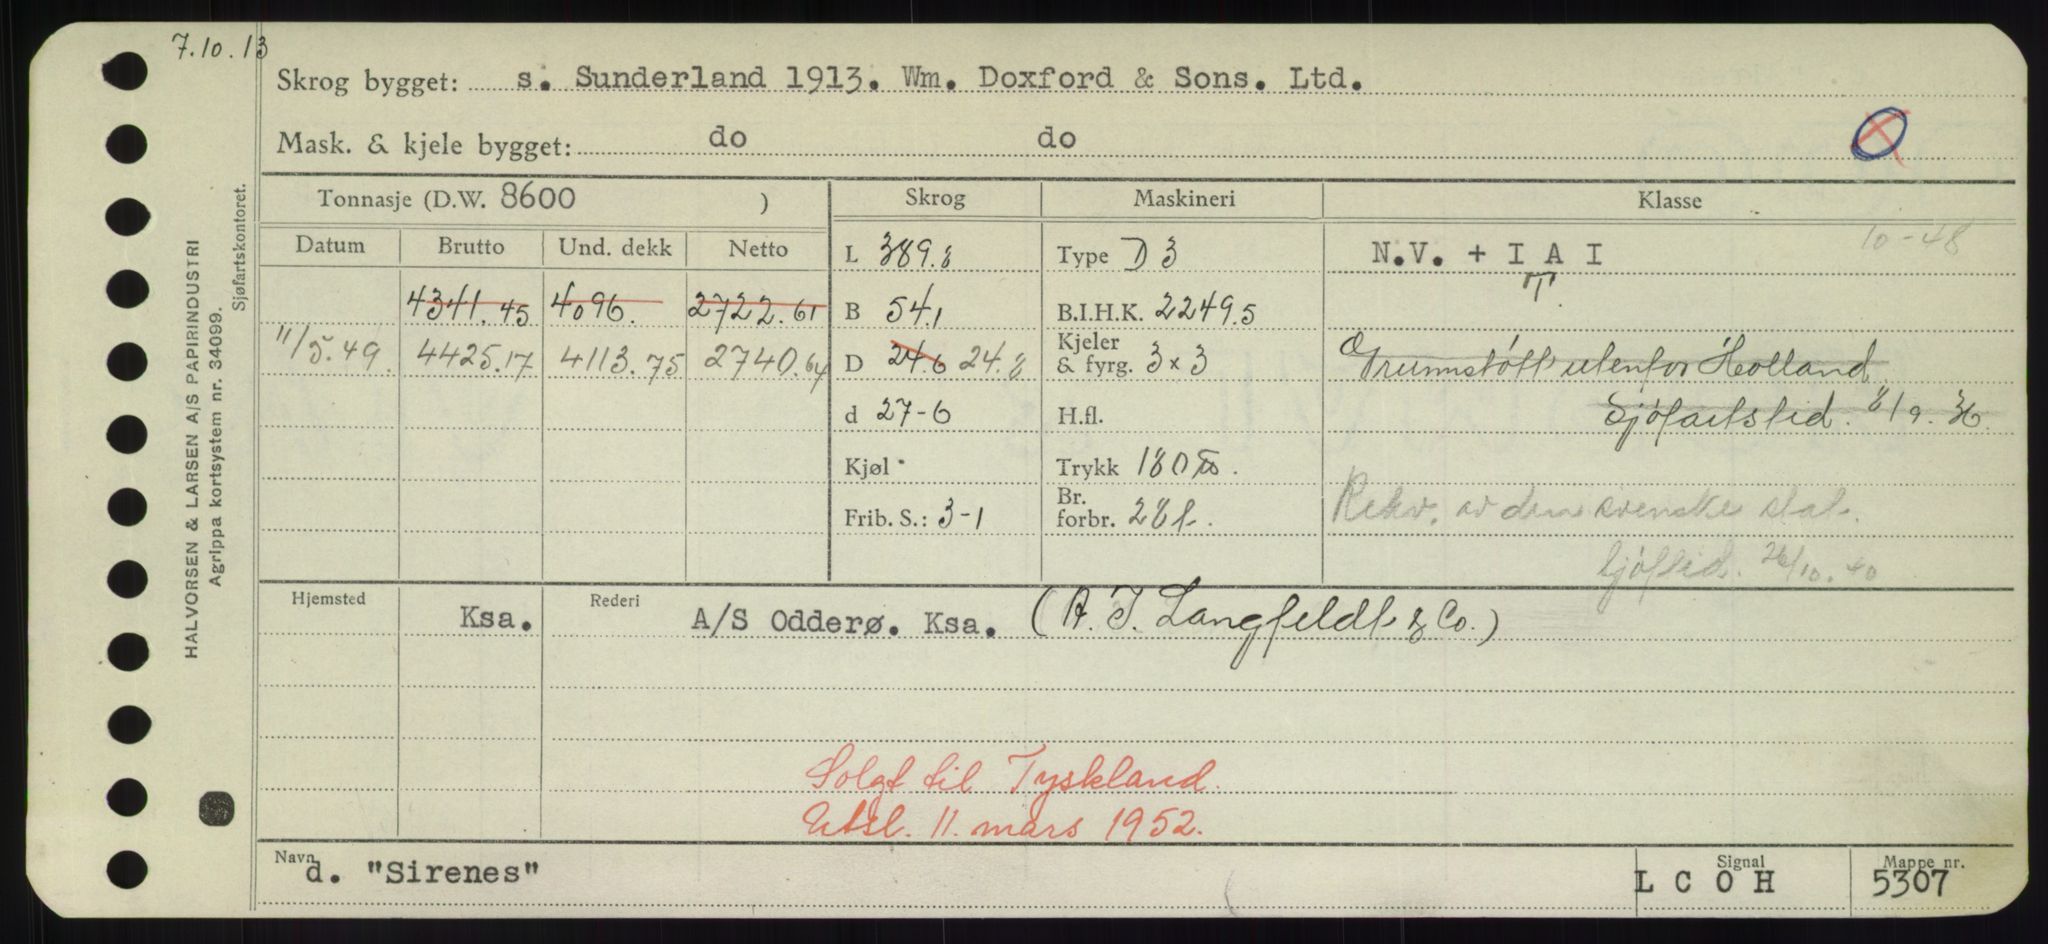 7.10.13
Skrog bygget: s. Sunderland 1913. Wm. Doxford & Sons. Ltd.
Mask. & kjele bygget: do do
Tonnasje (D.W. 8600 ) Skrog Maskineri Klasse
Datum Brutto Und. dekk Netto L 389.8 Type D 3 N.V. + I A I 10-48
T
4341.45 4096. 2722.61 B 54,1 B.I.H.K. 2249.5
11/5.49. 4425.17 4113.75 2740.64 D 24.6 24.8 Kjeler & fyrg. 3 x 3 Grunnstött utenfor Holland
d 27-6 H.fl. Sjöfartstid. 8/9.36.
Kjøl Trykk 180 lbs. Rekv. av den svenske stat.
Frib. S.: 3-1 Br. forbr. 28 t. Sjöftid. 26/10.40
Hjemsted Ksa. Rederi A/S Odderø. Ksa. (A. I. Langfeldt & Co.)
Solgt til Tyskland.
Utsl. 11. mars 1952.
Navn d. "Sirenes" Signal L C O H Mappe nr. 5307
HALVORSEN & LARSEN A/S PAPIRINDUSTRI
Agrippa kortsystem nr. 34099.
Sjøfartskontoret.